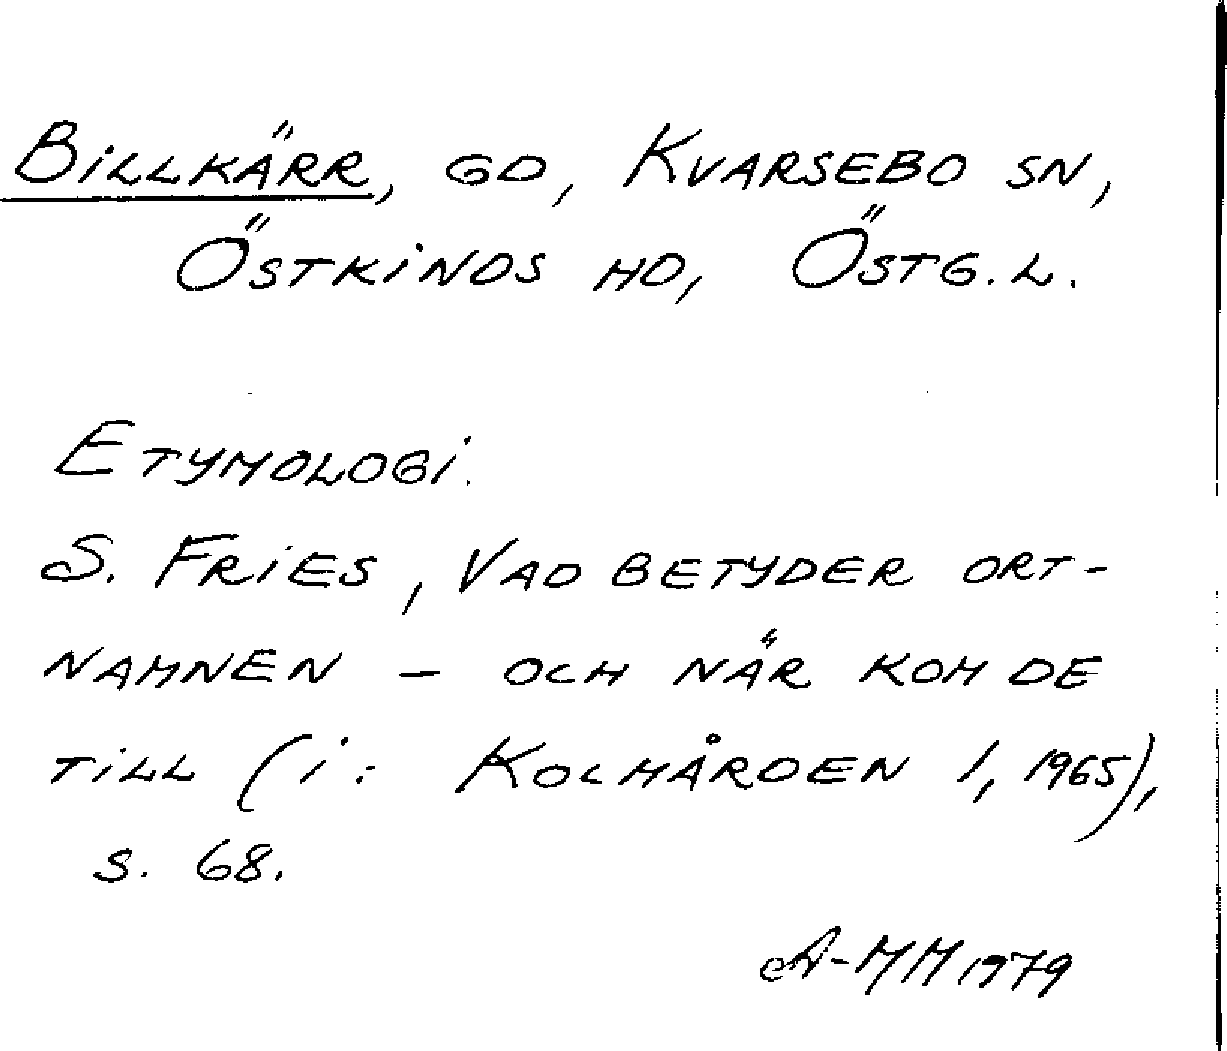 BILLKÄRR, GD, KVARSEBO SN,
ÖSTKINDS HD, ÖSTG.L.
ETYMOLOGI.
S. FRIES, VAD BETYDER ORT-
NAMNEN – OCH NÄR KOM DE
TILL (I: KOLMÅRDEN 1, 1965),
S. 68.
A-MM 1979